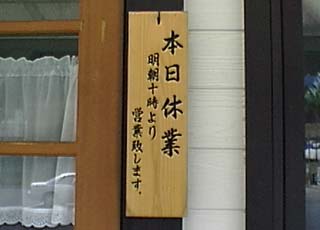 本日休業
明朝十時より
営業致します.